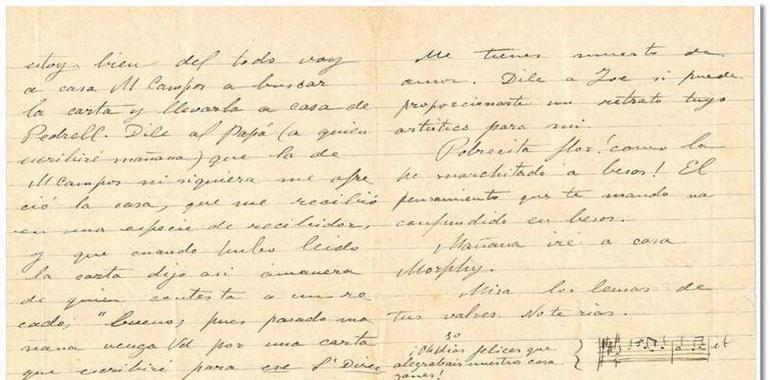 estoy bien del todo voy
a casa M Campos a buscar
la carta y llevarla a casa de
Pedrell. Dile al Papá (a quien
escribiré mañana) que la de
M Campos ni siquiera me ofre
ció la casa, que me recibió
en una especie de recibidor,
y que cuando hubo leido
la carta dijo asi á manera
de quien contesta a un re
cado; "bueno, pues pasado ma
ñana venga Vd por una carta
que escribiré para ese Sr Direc
Me tienes muerto de
amor. Dile a Zoe si puede
proporcionarte un retrato tuyo
artistico para mi.
Pobrecita flor! como la
he marchitado a besos! El
pensamiento que te mando va
confundido en besos.
Mañana iré a casa
Morphy.
Mira los lemas de
tus valses. No te rias.
3o
¡Oh dias felices que
alegrabais nuestros cora
zones!